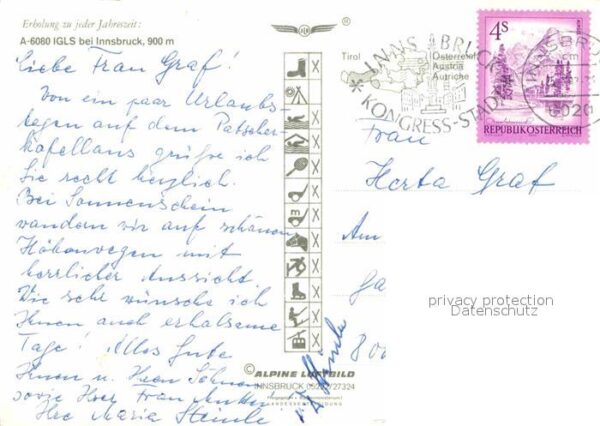 Erholung zu jeder Jahreszeit:
A-6080 IGLS bei Innsbruck, 900 m
Liebe Frau Graf!
Von ein paar Urlaubs-
tagen auf dem Patscher-
kofelhaus grüße ich
Sie recht herzlich.
Bei Sonnenschein
wandern wir auf schönen
Höhenwegen mit
herrlicher Aussicht.
Wie sehr wünsche ich
Ihnen auch erholsame
Tage! Alles Gute
Ihnen u. Ihren Söhnen
sowie Ihrer Frau Mutter!
Ihre Maria Steinle
Tirol
Österreich
Austria
Autriche
INNSBRUCK
KONGRESS-STADT
INNSBRUCK
6020
4S
REPUBLIK ÖSTERREICH
Frau
Herta Graf
Am
Ga
800
privacy protection
Datenschutz
ALPINE LUFTBILD
INNSBRUCK 05222/27324